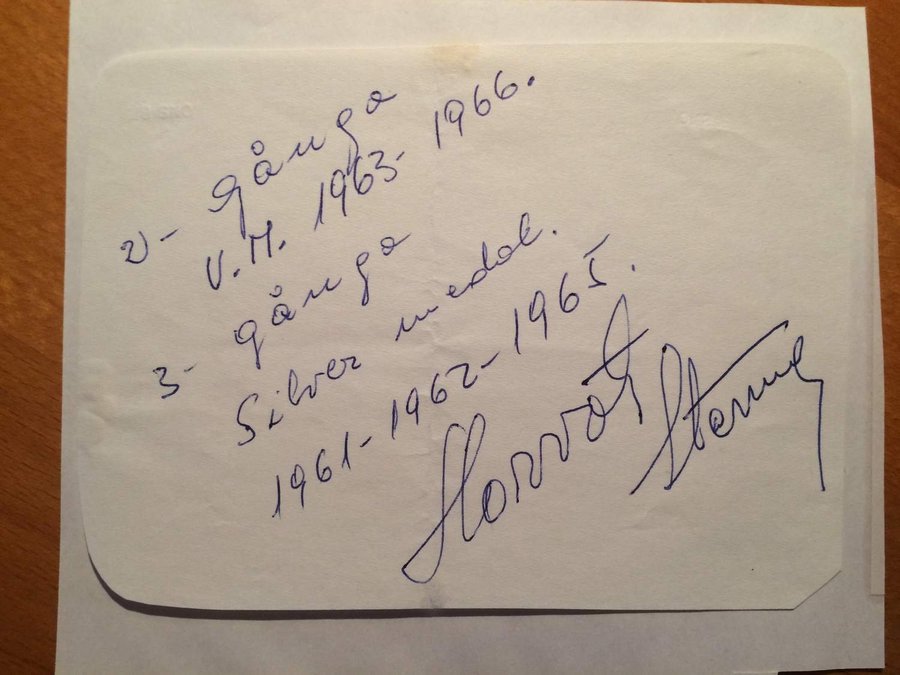 2- gånga
V.M. 1963- 1966.
3- gånga
Silver medal.
1961-1962-1965.
Horvát